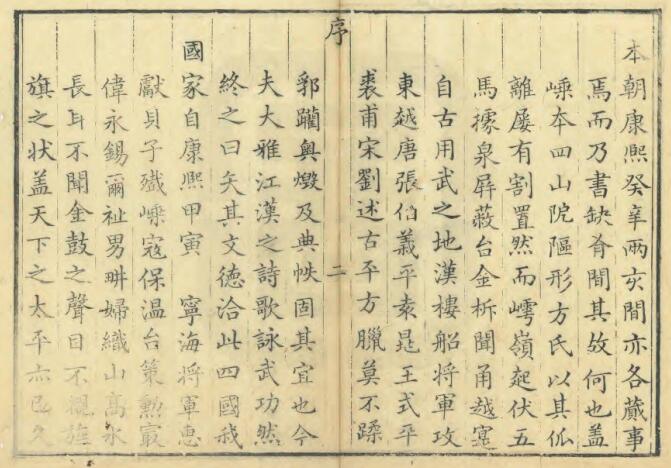 本朝康熙癸辛兩亥間亦各蕆事
焉而乃書缺間其故何也盖
嵊夲四山形方氏以其仳
離屡有割置然而嶀嶺起伏五
馬據泉屏蔽台金柝聞甬越寔
自古用武之地漢樓船将軍攻
東越唐張伯義平袁晁王式平
裘甫宋劉述古平方臘莫不蹂
序
二
郛躪輿燬及典帙固其宜也今
夫大雅江漢之詩歌詠武功然
終之曰矢其文德洽此四國我
國家自康熙甲寅 寧海将軍惠
獻貝子殲嵊寇保温台策勲㝡
偉永錫爾祉男畊婦織山髙水
長耳不聞金鼓之聲目不覩旌
旗之状盖天下之太平亦已久